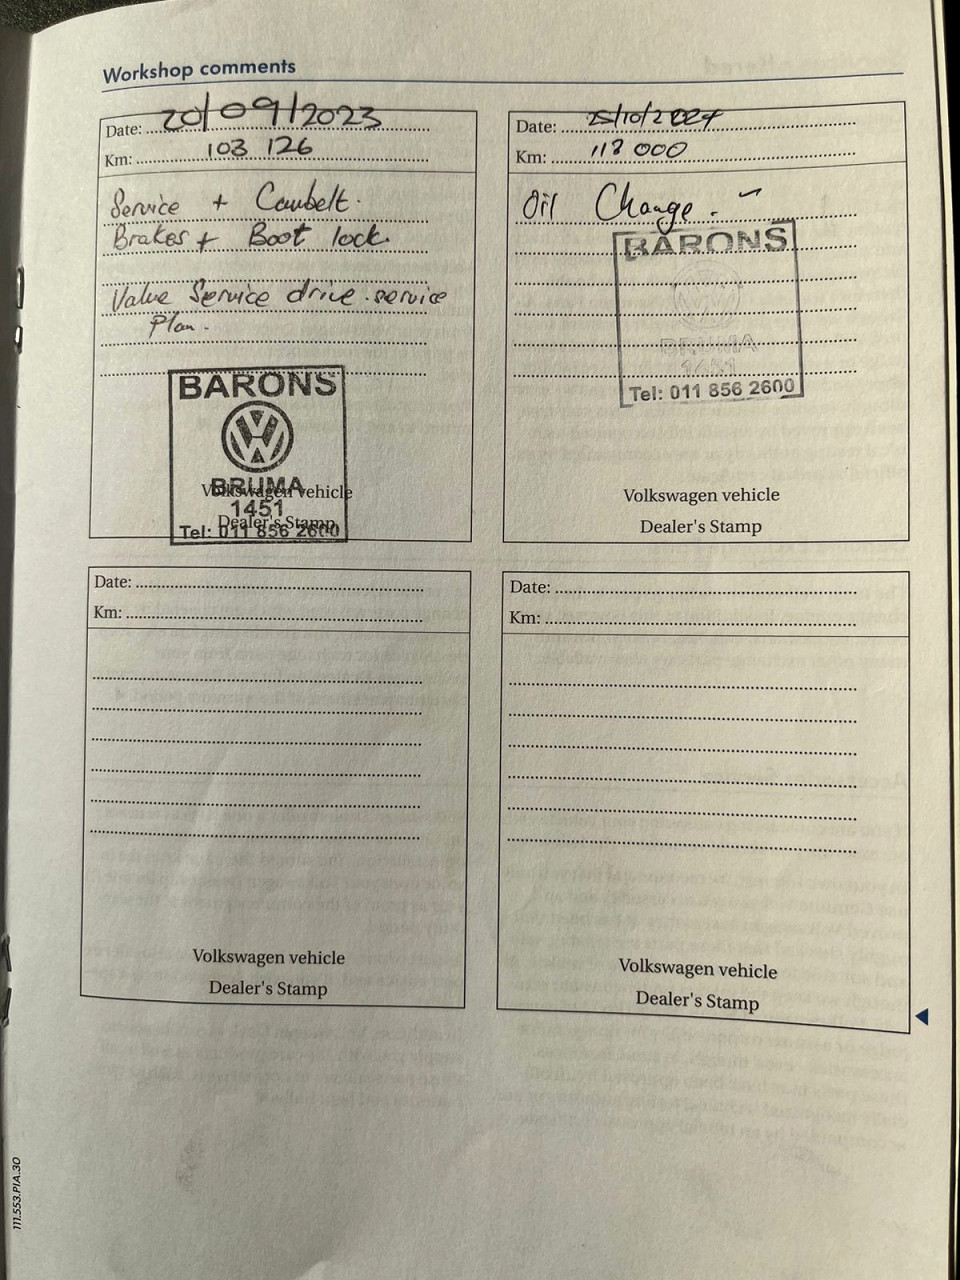 Workshop comments
Date: 20/09/2023
Km: 103 126
Service + Cambelt.
Brakes + Boot lock.
Value Service drive service
Plan.
BARONS
BRUMA
1451
Tel: 011 856 2600
Volkswagen vehicle
Dealer's Stamp
Date: 25/10/2024
Km: 118 000
Oil Change.
BARONS
BRUMA
1451
Tel: 011 856 2600
Volkswagen vehicle
Dealer's Stamp
Date:
Km:
Volkswagen vehicle
Dealer's Stamp
Date:
Km:
Volkswagen vehicle
Dealer's Stamp
111.553.PIA.30